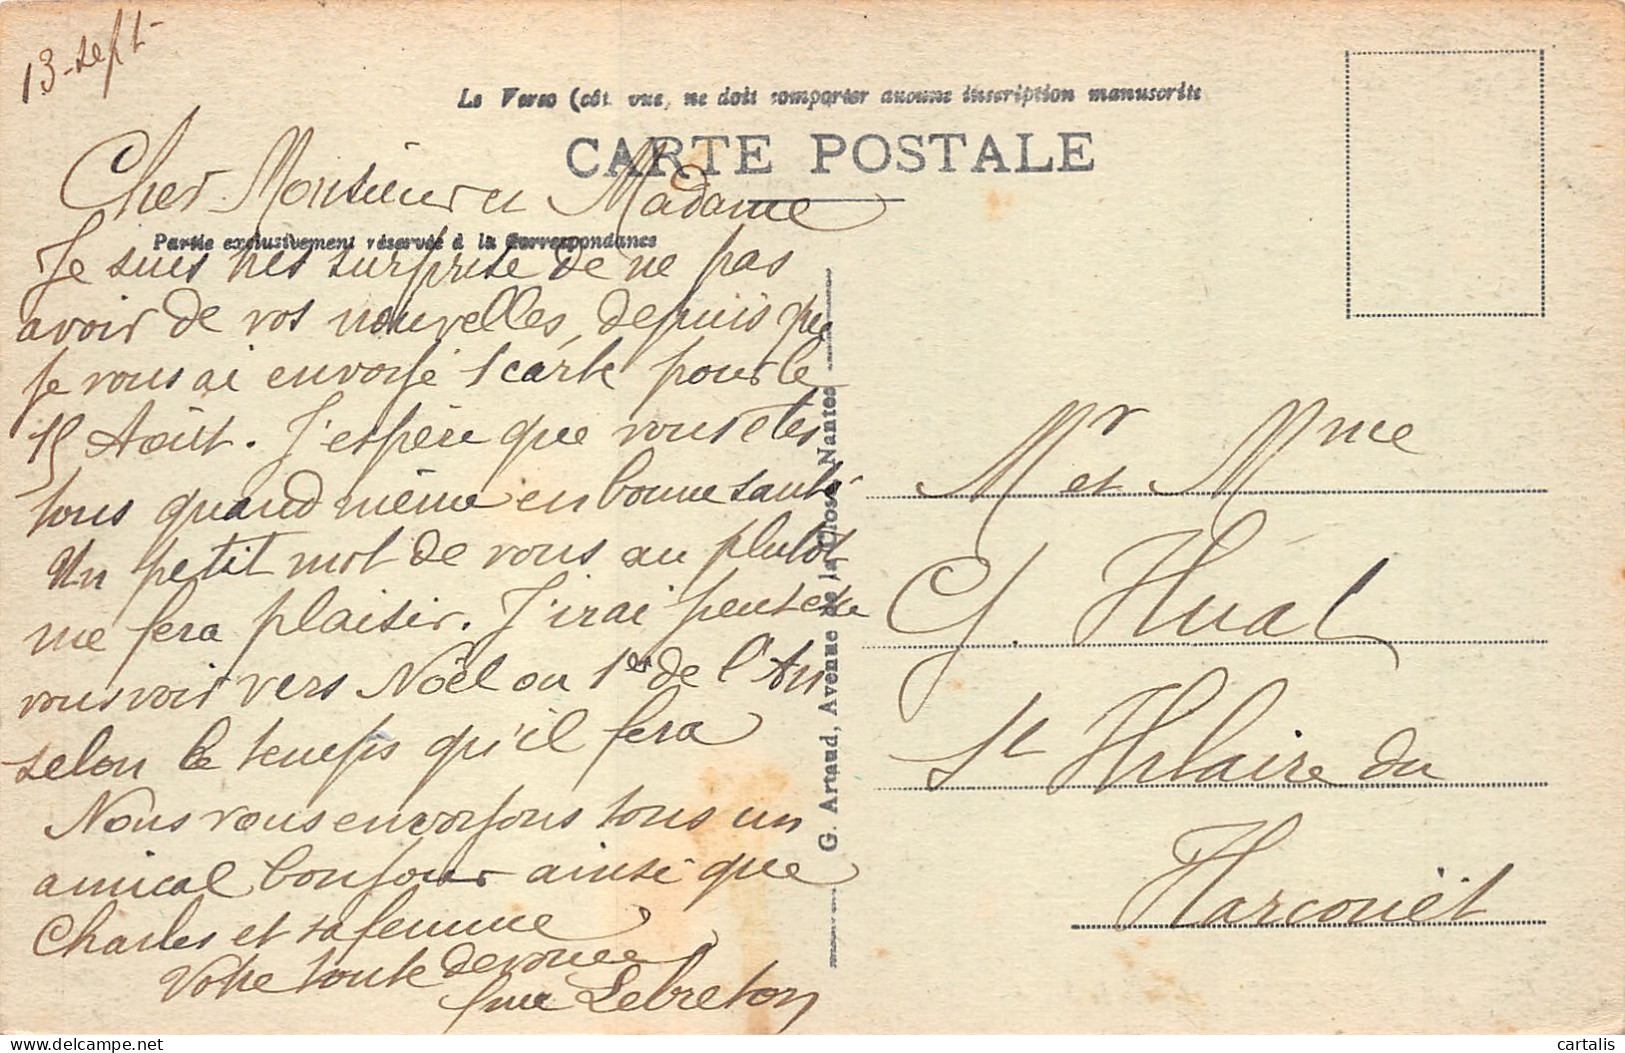 13 - sept -
Le Verso (côté vue) ne doit comporter aucune inscription manuscrite
CARTE POSTALE
Cher Monsieur et Madame
Partie exclusivement réservée à la Correspondance
Je suis très surprise de ne pas
avoir de vos nouvelles, depuis que
je vous ai envoyé 1 carte pour le
15 Août. J'espère que vous êtes
tous quand même en bonne santé
Un petit mot de vous au plutôt
me fera plaisir. J'irai peut être
vous voir vers Noël ou 1er de l'An
selon le temps qu'il fera
Nous vous envoyons tous un
amical bonjour ainsi que
Charles et sa femme
Votre toute dévouée
Lebreton
G. Artaud, Avenue de la Close, Nantes
Mr et Mme
G. Hual
St Hilaire du
Harcouët
cartalis